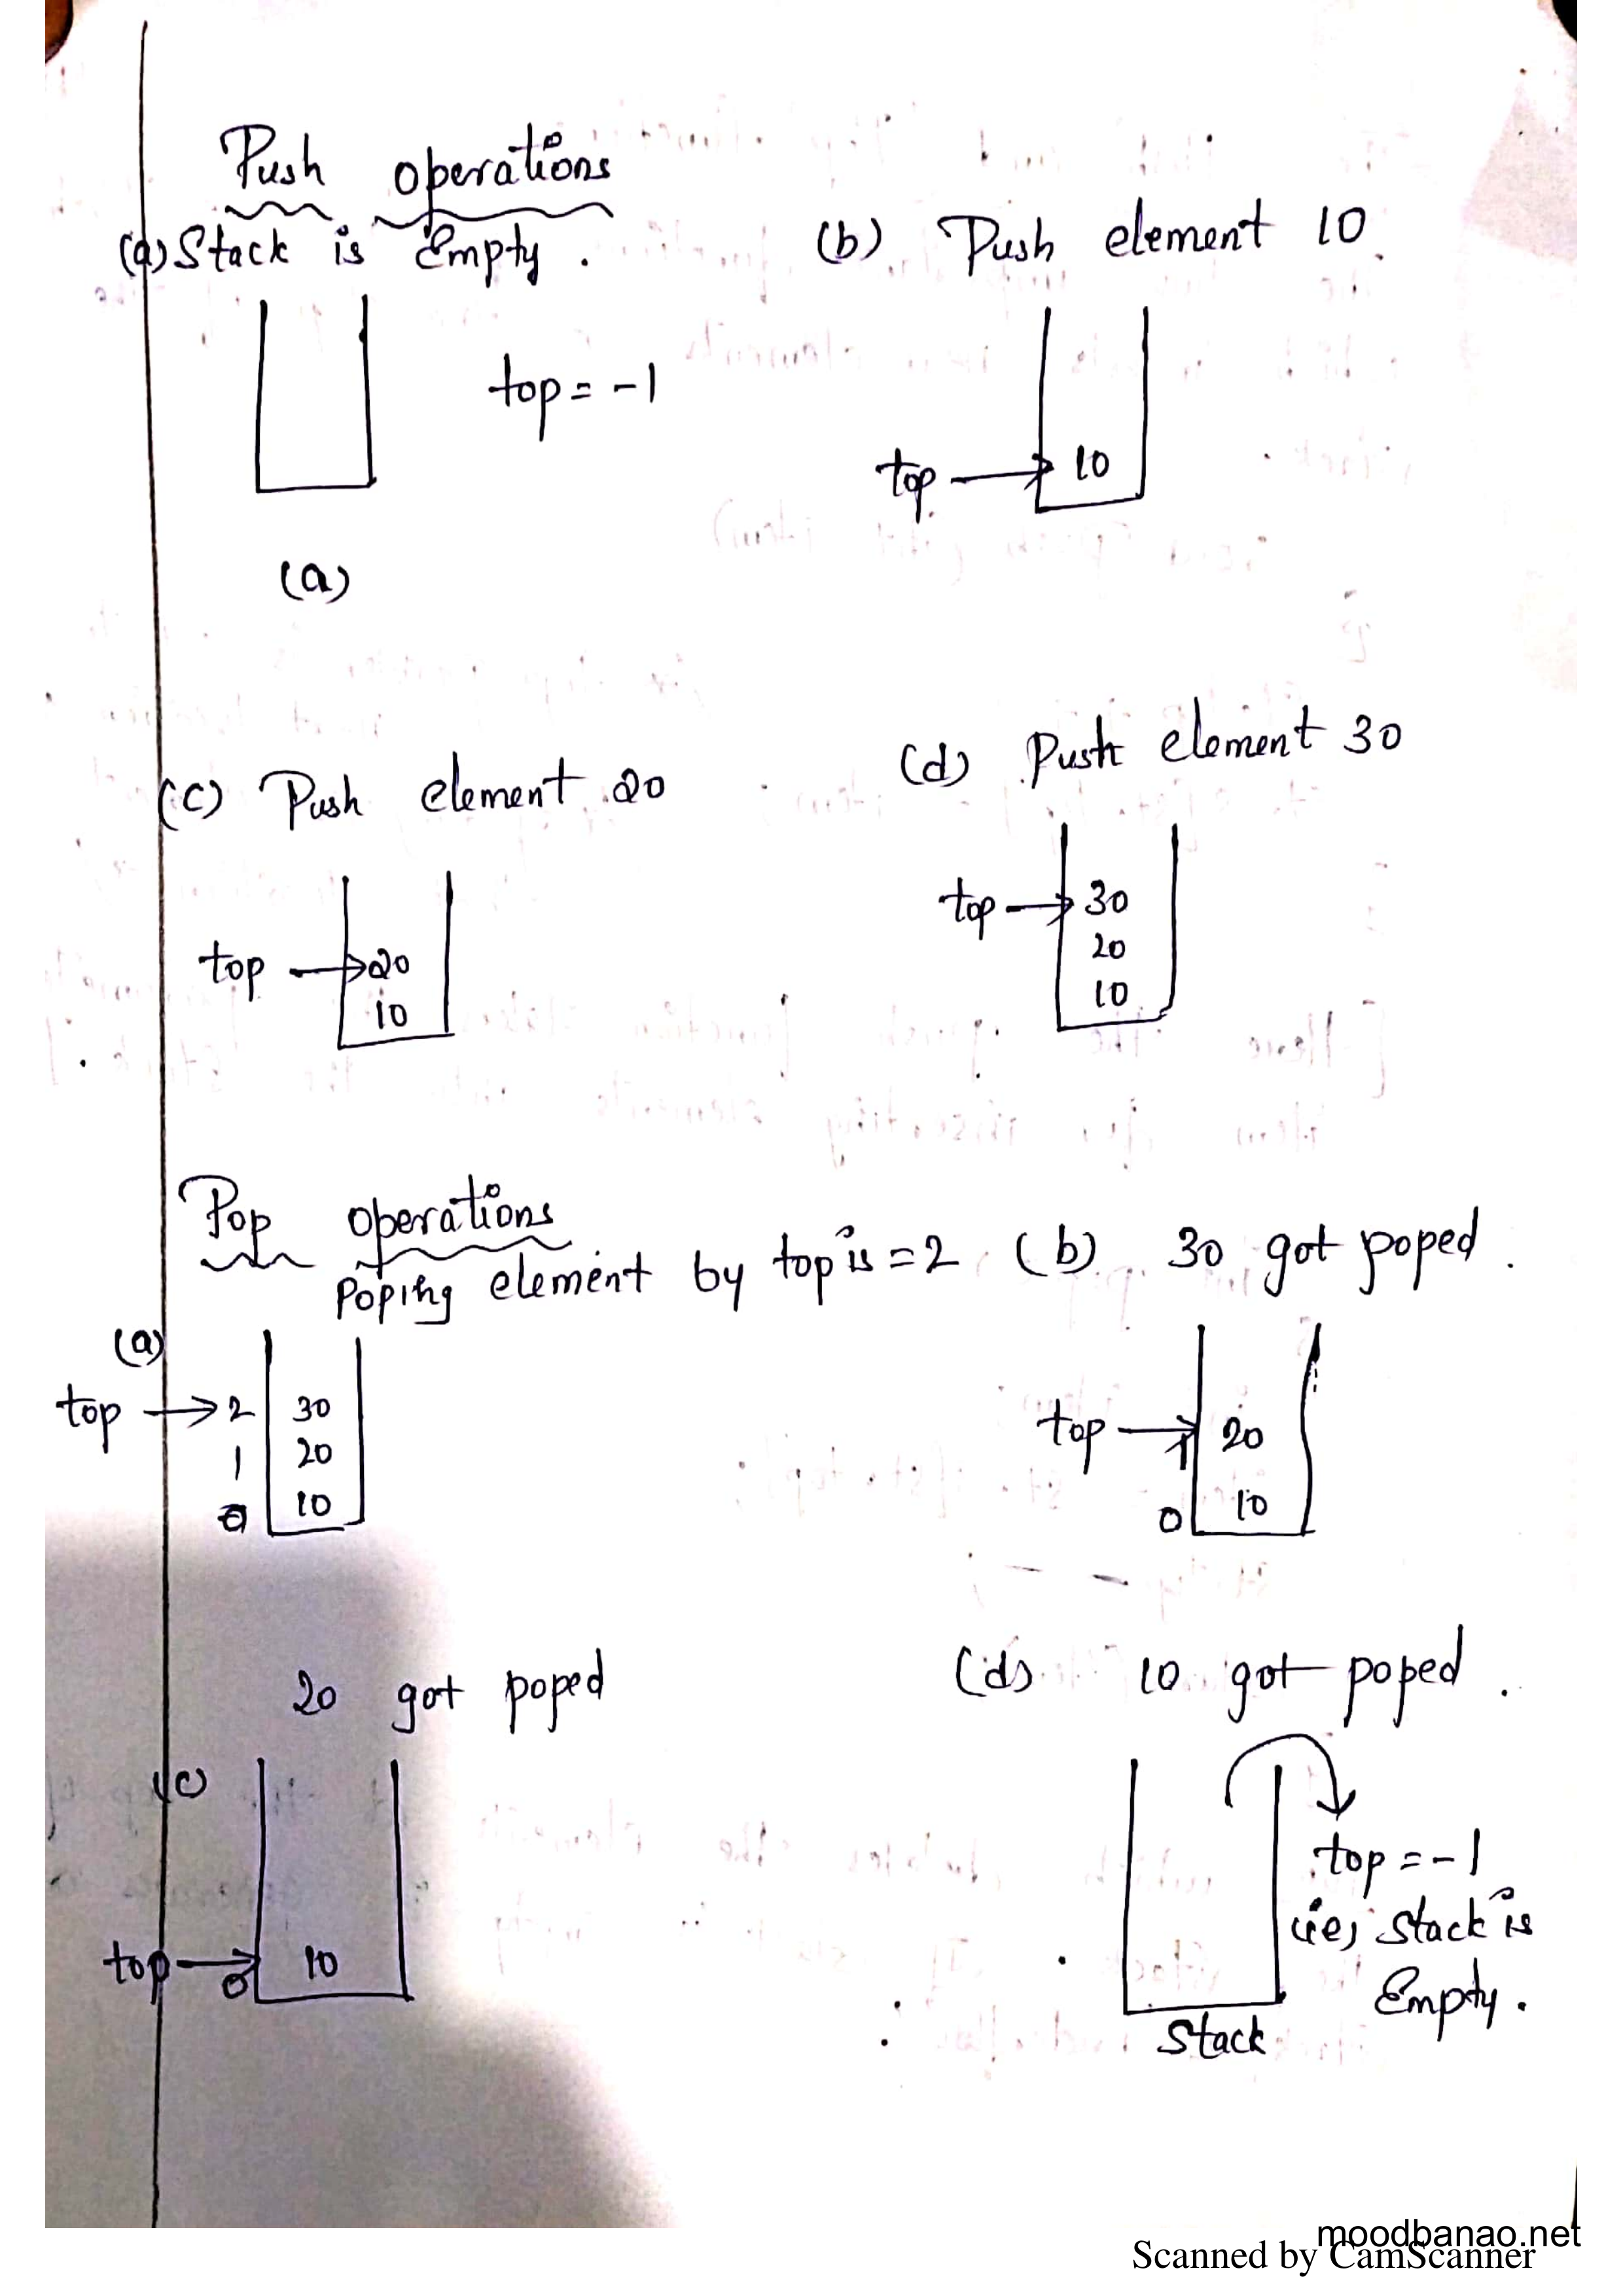 Push operations
(a) Stack is Empty.
top = -1
(a)
(b) Push element 10.
top → 10
(c) Push element 20
top → 20
10
(d) Push element 30
top → 30
20
10
Pop operations
Poping element by top is = 2
(a)
top → 2 30
1 20
0 10
(b) 30 got poped.
top → 1 20
0 10
20 got poped
(c)
top → 0 10
(d) 10 got poped.
top = -1
(ie) Stack is
Empty.
Stack
moodbanao.net
Scanned by CamScanner